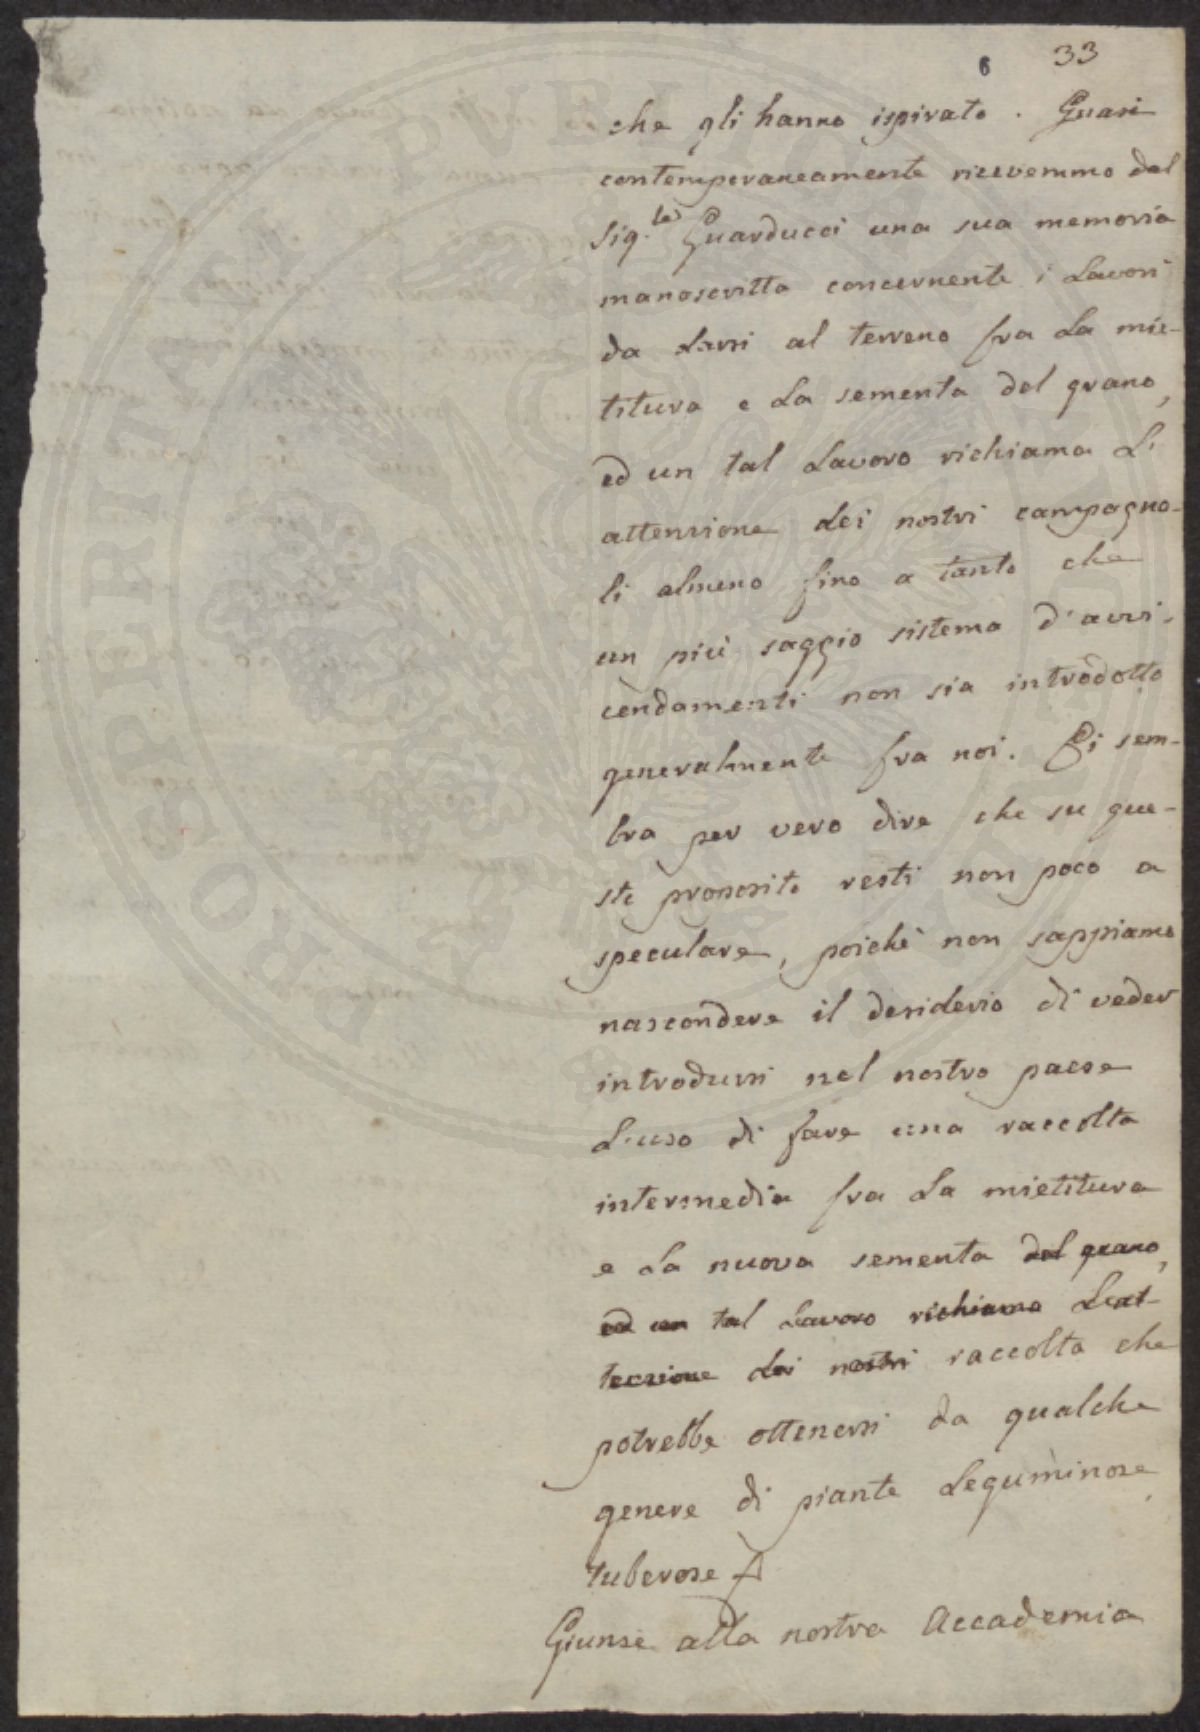 6 33
che gli hanno ispirato. Quasi
contemporaneamente ricevemmo dal
Sig.le Guarducci una sua memoria
manoscritta concernente i Lavori
da darsi al terreno fra La mie-
titura e La sementa del grano,
ed un tal Lavoro richiama L'
attenzione dei nostri campagno-
li almeno fino a tanto che
un più saggio sistema d'avvi-
cendamenti non sia introdotto
generalmente fra noi. Ci sem-
bra per vero dire che su que-
sto proposito resti non poco a
speculare, poichè non sappiamo
nascondere il desiderio di veder
introdursi nel nostro paese
L'uso di fare una raccolta
intermedia fra La mietitura
e La nuova sementa del grano,
ed un tal Lavoro richiama L'at-
tenzione dei nostri raccolta che
potrebbe ottenersi da qualche
genere di piante Leguminose,
tuberose
Giunse alla nostra Accademia
PROSPERITATI PUBLICAE